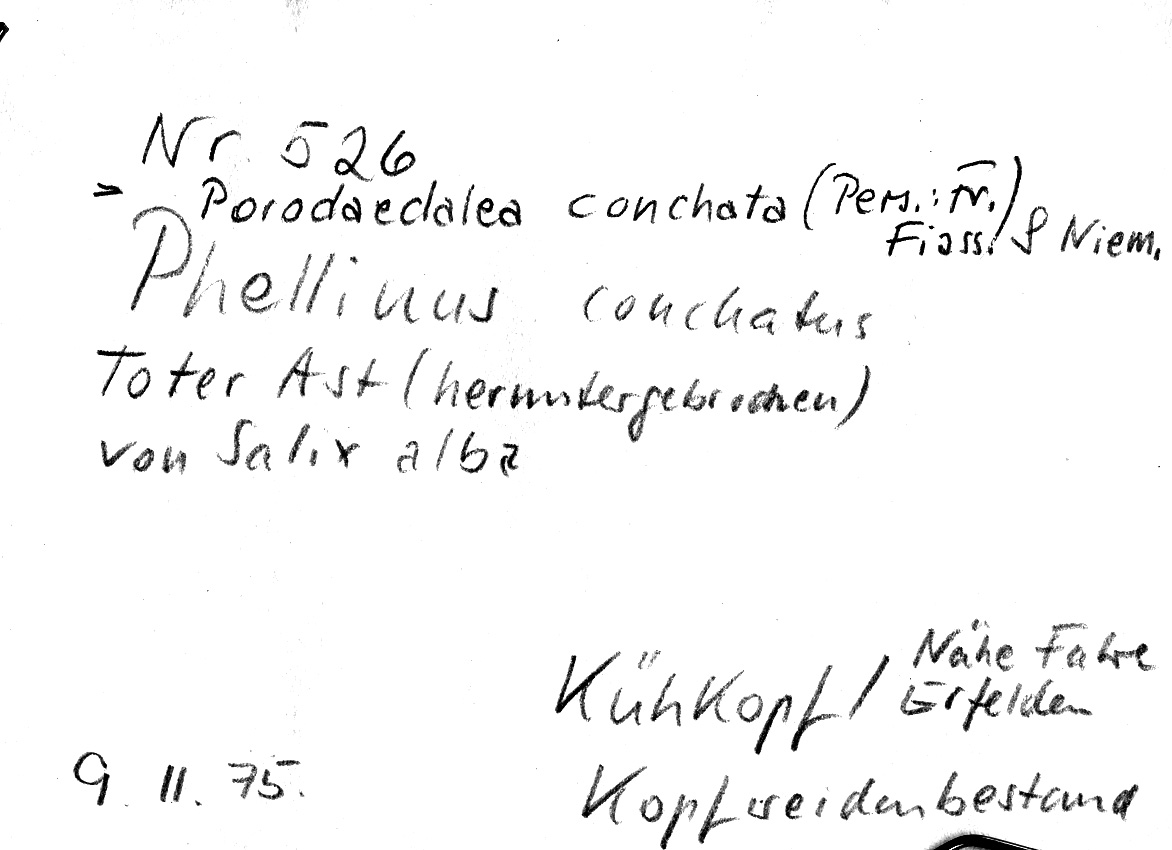 Nr. 526
> Porodaedalea conchata (Pers.: Fr.)
Fiass. & Niem.
Phellinus conchatus
Toter Ast (heruntergebrochen)
von Salix alba
Nähe Fähre
Kühkopf / Erfelden
9. 11. 75.
Kopfweidenbestand